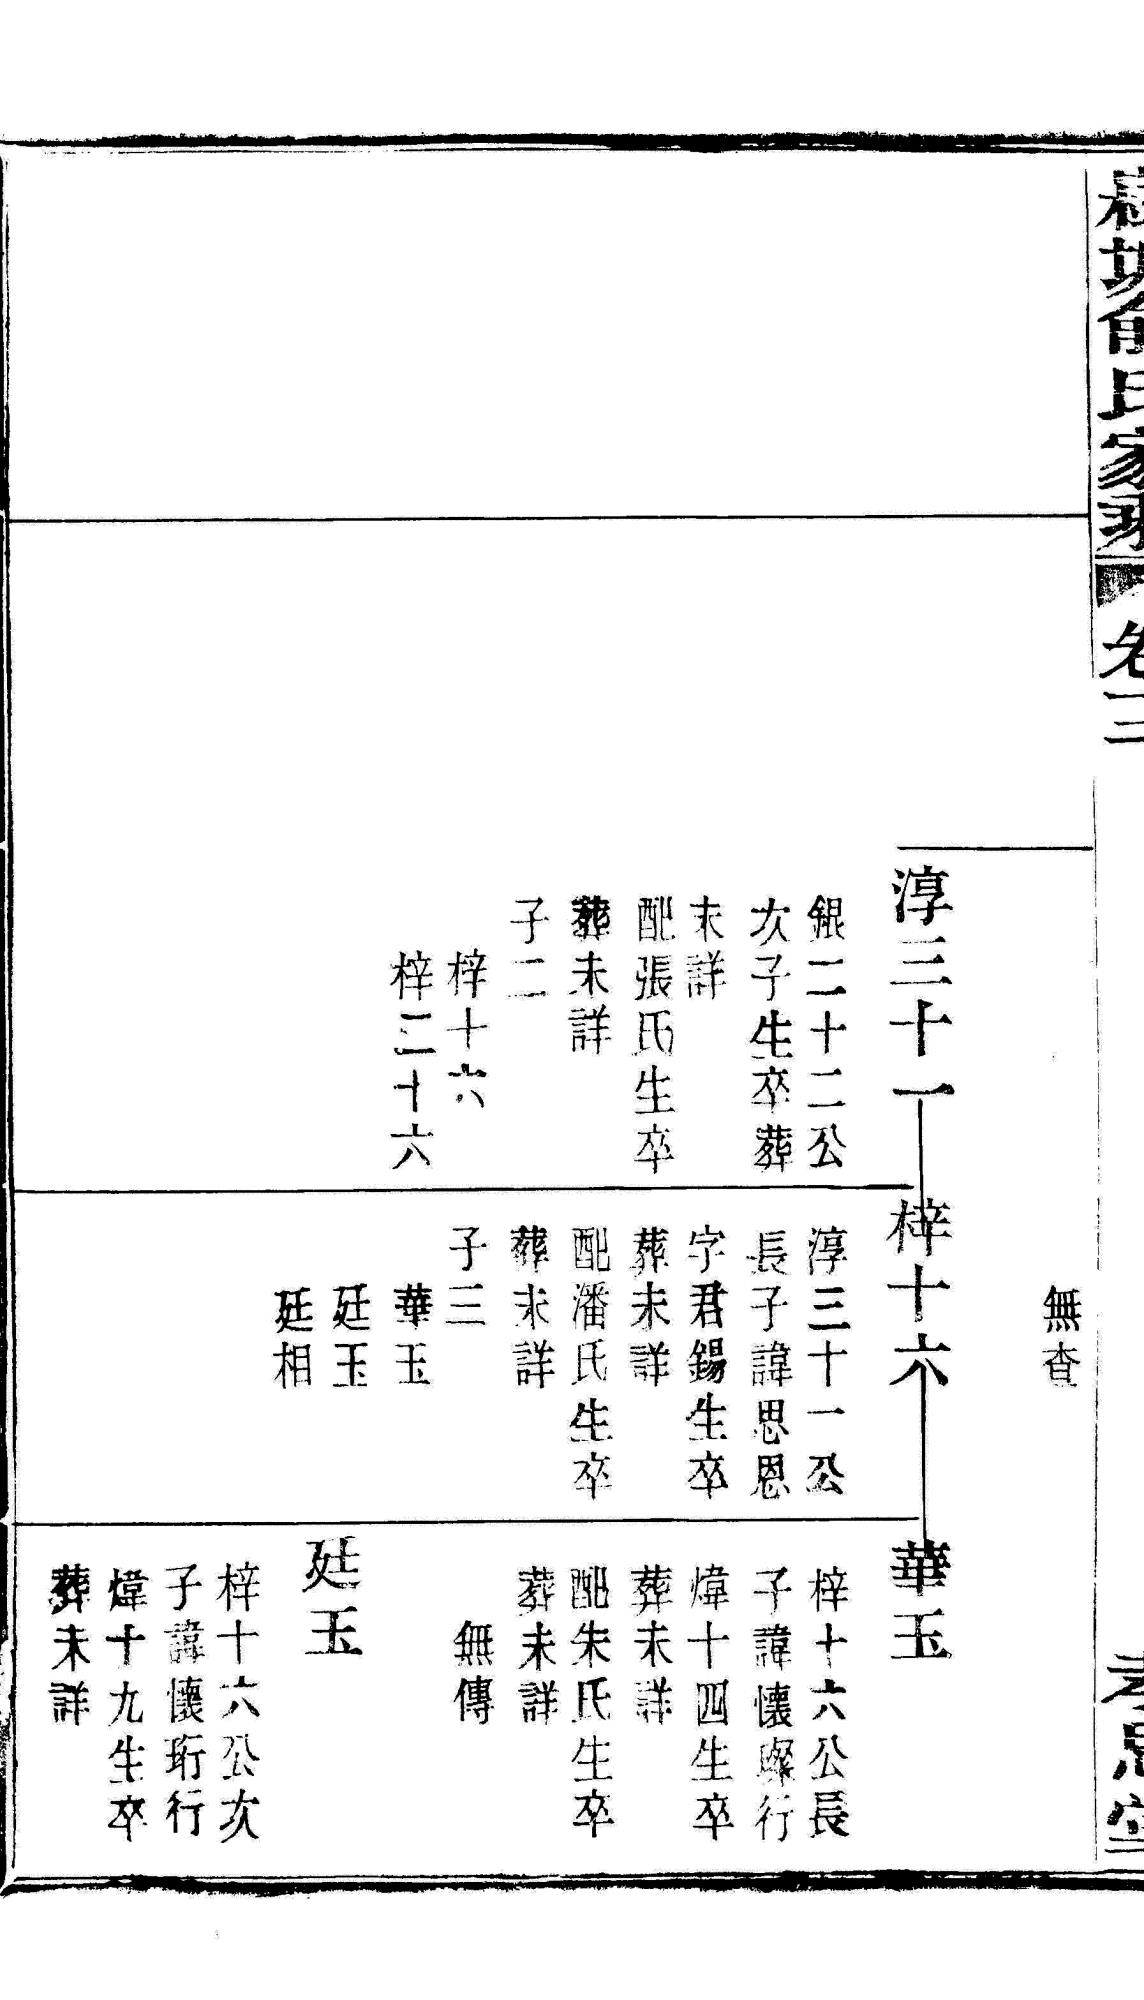 氏家
卷三
孝思堂
無查
淳三十一
銀二十二公
次子生卒葬
未詳
配張氏生卒
葬未詳
子二
梓十六
梓二十六
梓十六
淳三十一公
長子諱思恩
字君錫生卒
葬未詳
配潘氏生卒
葬未詳
子三
華玉
廷玉
廷相
華玉
梓十六公長
子諱懷璨行
煒十四生卒
葬未詳
配朱氏生卒
葬未詳
無傳
廷玉
梓十六公次
子諱懷珩行
煒十九生卒
葬未詳